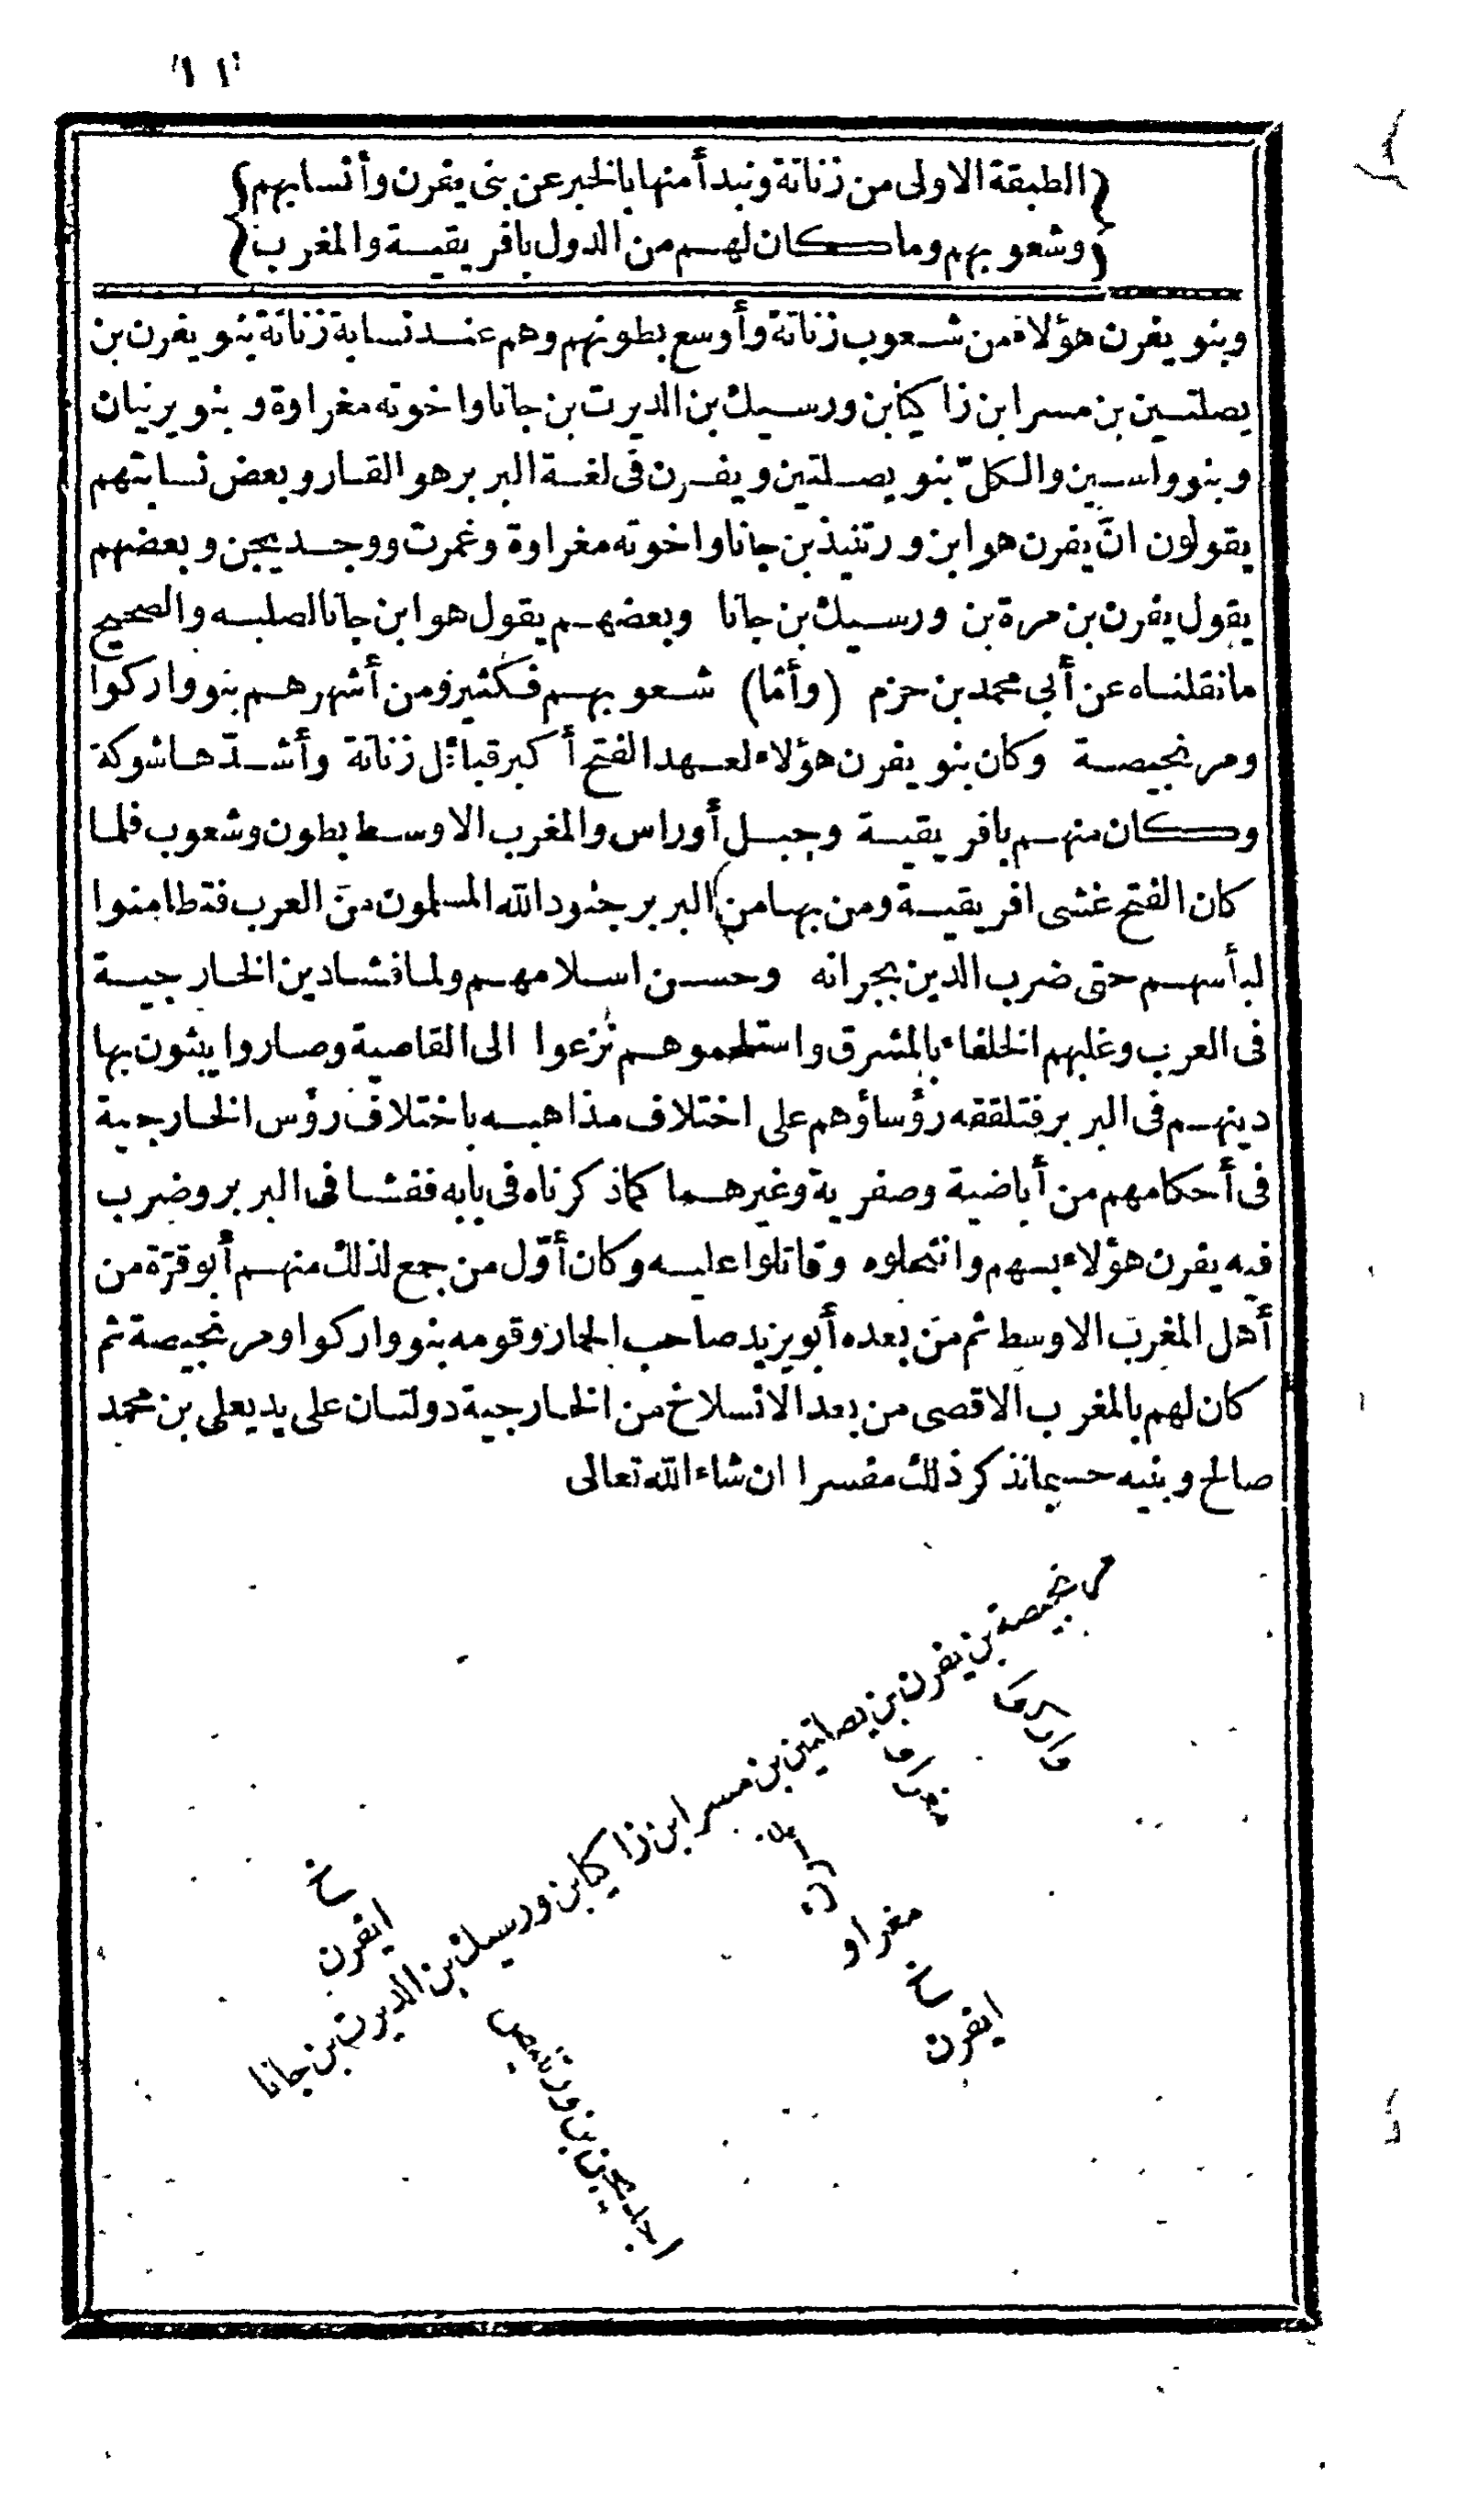 ١١
{الطبقة الاولى من زناتة ونبدأ منها بالخبر عن بنى يفرن وأنسابهم}
{وشعوبهم وما كان لهم من الدول بافريقية والمغرب}
وبنو يفرن هؤلاء من شعوب زناتة وأوسع بطونهم وهم عند نسابة زناتة بنو يفرن بن
يصلتين بن مسرا بن زاكيا بن ورسيك بن الديرت بن جانا واخوته مغراوة وبنو يرنيان
وبنو واسين والكلّ بنو يصلتين ويفرن فى لغة البربر هو القار وبعض نسابتهم
يقولون انّ يفرن هو ابن ورتنيذ بن جانا واخوته مغراوة وغمرت ووجديجن وبعضهم
يقول يفرن بن مرة بن ورسيك بن جانا وبعضهم يقول هو ابن جانا لصلبه والصحيح
مانقلناه عن أبى محمد بن حزم (وأمّا) شعوبهم فكثير ومن أشهرهم بنو واركوا
ومرنجيصة وكان بنو يفرن هؤلاء لعهد الفتح أكبر قبائل زناتة وأشدّها شوكة
وكان منهم بافريقية وجبل أوراس والمغرب الاوسط بطون وشعوب فلما
كان الفتح غشى افريقية ومن بها من البربر جنود الله المسلمون من العرب فتطامنوا
لبأسهم حتى ضرب الدين بجرانه وحسن اسلامهم ولما فشا دين الخارجية
فى العرب وغلبهم الخلفاء بالمشرق واستلحموهم نزعوا الى القاصية وصاروا يبثون بها
دينهم فى البربر فتلقفه رؤساؤهم على اختلاف مذاهبه باختلاف رؤس الخارجية
فى أحكامهم من أباضية وصفرية وغيرهما كماذكرناه فى بابه ففشا فى البربر وضرب
فيه يفرن هؤلاء بسهم وانتحلوه وقاتلوا عليه وكان أوّل من جمع لذلك منهم أبو قرّة من
أهل المغرب الاوسط ثم من بعده أبو يزيد صاحب الحمار وقومه بنو واركوا ومرنجيصة ثم
كان لهم بالمغرب الاقصى من بعد الانسلاخ من الخارجية دولتان على يد يعلى بن محمد
صالح وبنيه حسبمانذكر ذلك مفسرا ان شاء الله تعالى
مرنجيصة بن يفرن بن يصلتين بن مسرا بن زاكيا بن ورسيك بن الديرت بن جانا
واركوا
مغراو
خ
ايفرن
خ
ايفرن